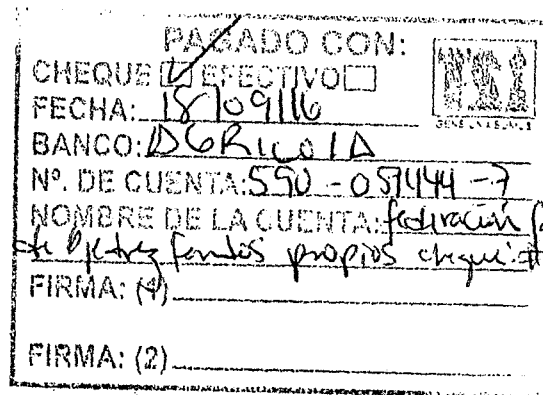 PAGADO CON:
CHEQUE EFECTIVO
FECHA: 18/09/16
BANCO: AGRICOLA
Nº. DE CUENTA: 590-051444-7
NOMBRE DE LA CUENTA: federación
de Ajedrez fondos propios cheque #
FIRMA: (1)
FIRMA: (2)